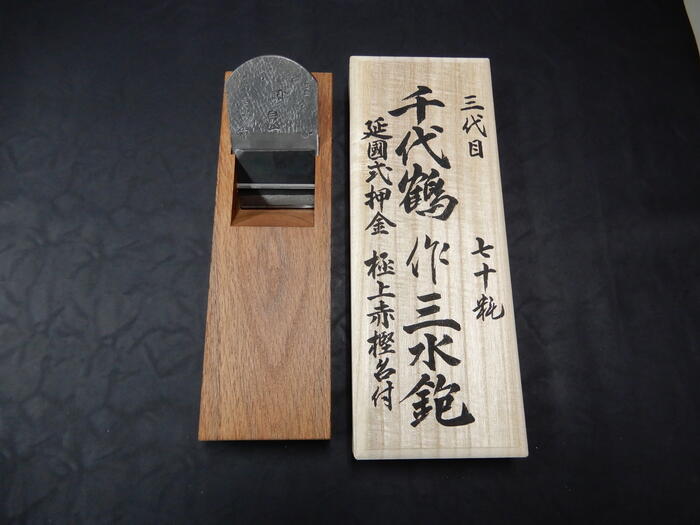 三代目 七十粍
千代鶴 作 三水鉋
延國式押金 極上赤樫台付